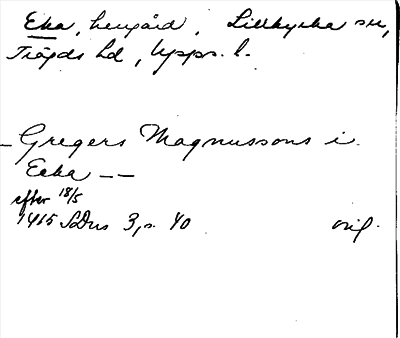 Eka, herrgård, Lillkyrka sn,
Trögds hd, Upps. l.
Gregers Magnussons i
Ecka --
efter 18/5
1415 SDns 3, s. 40 orig.